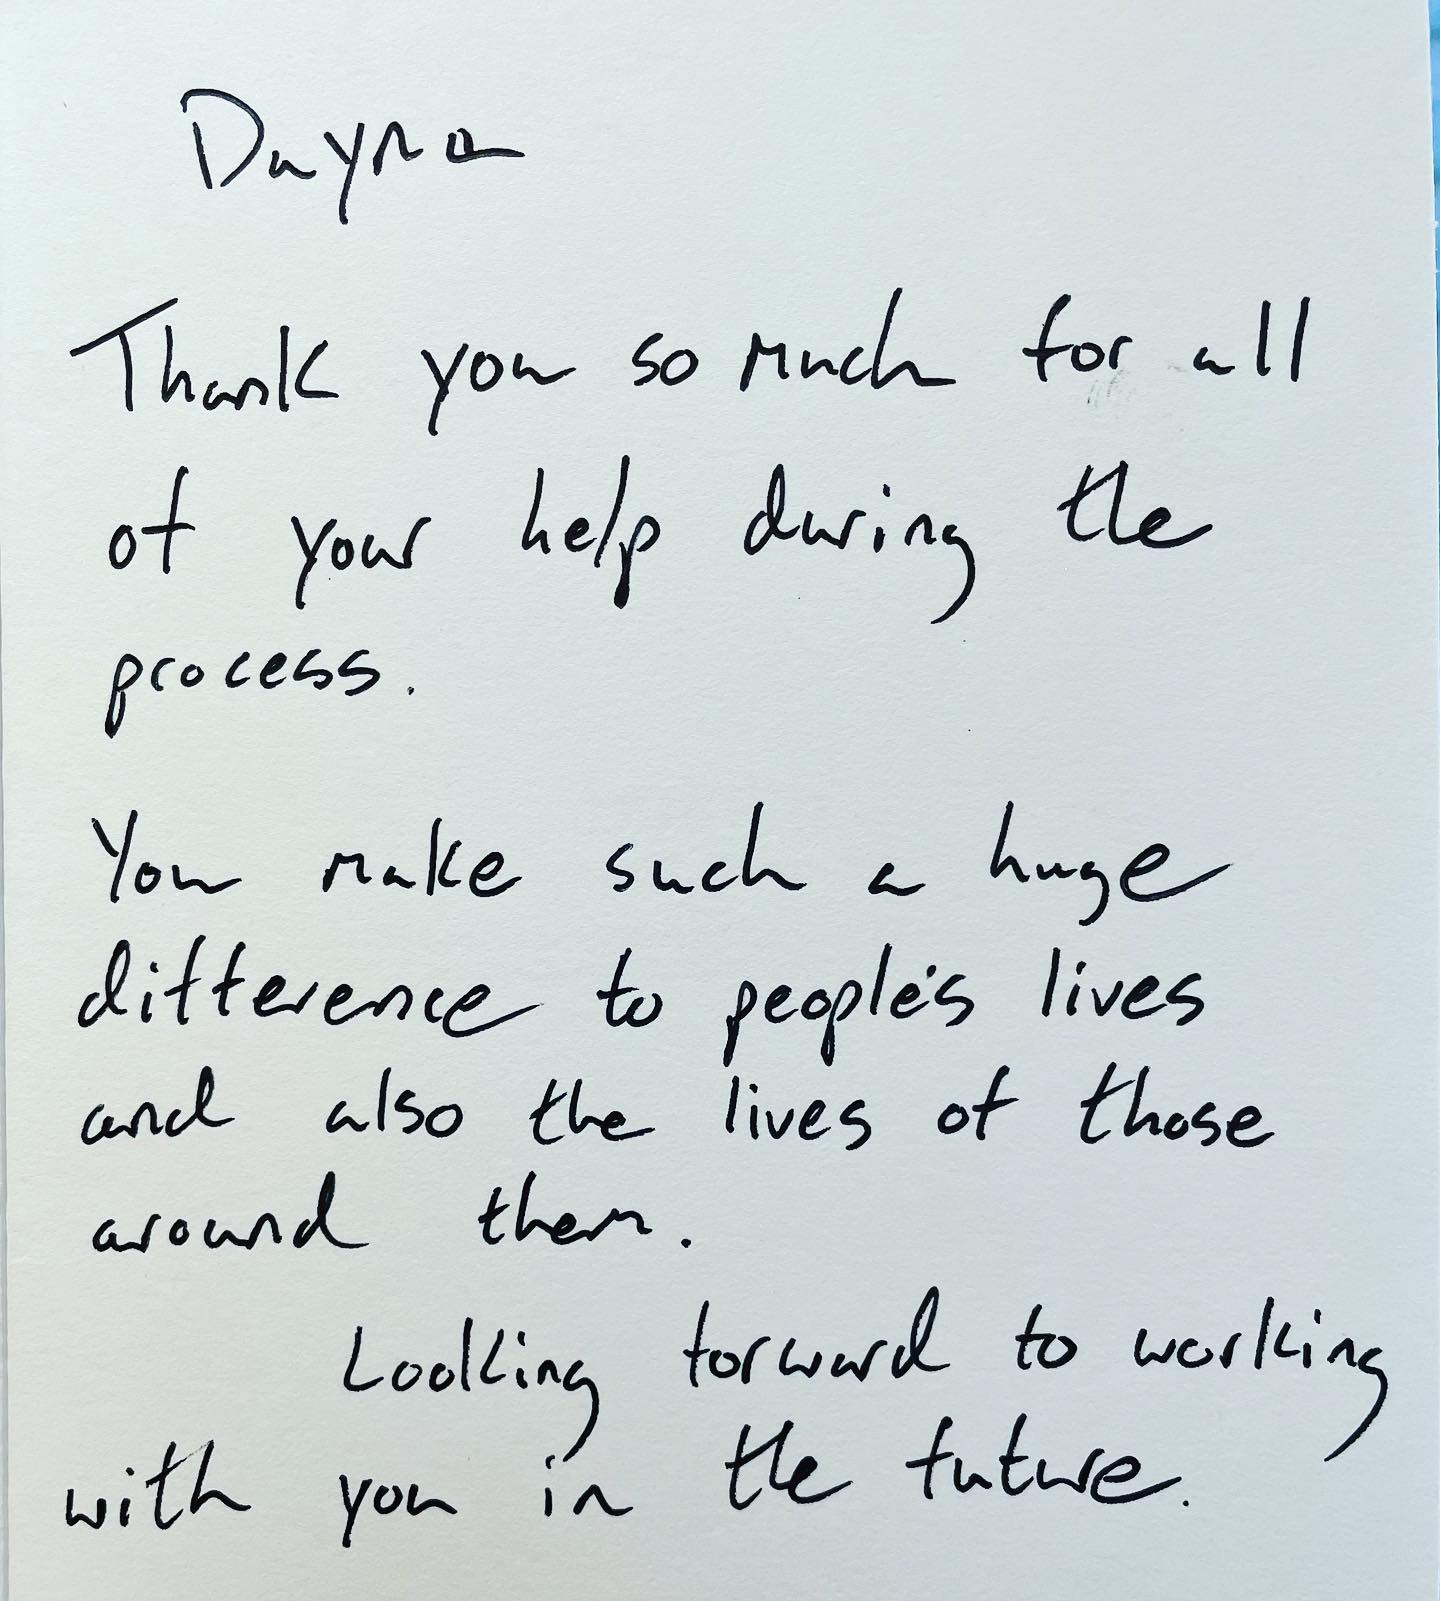 Dayna
Thank you so much for all
of your help during the
process.
You make such a huge
difference to people's lives
and also the lives of those
around them.
Looking forward to working
with you in the future.